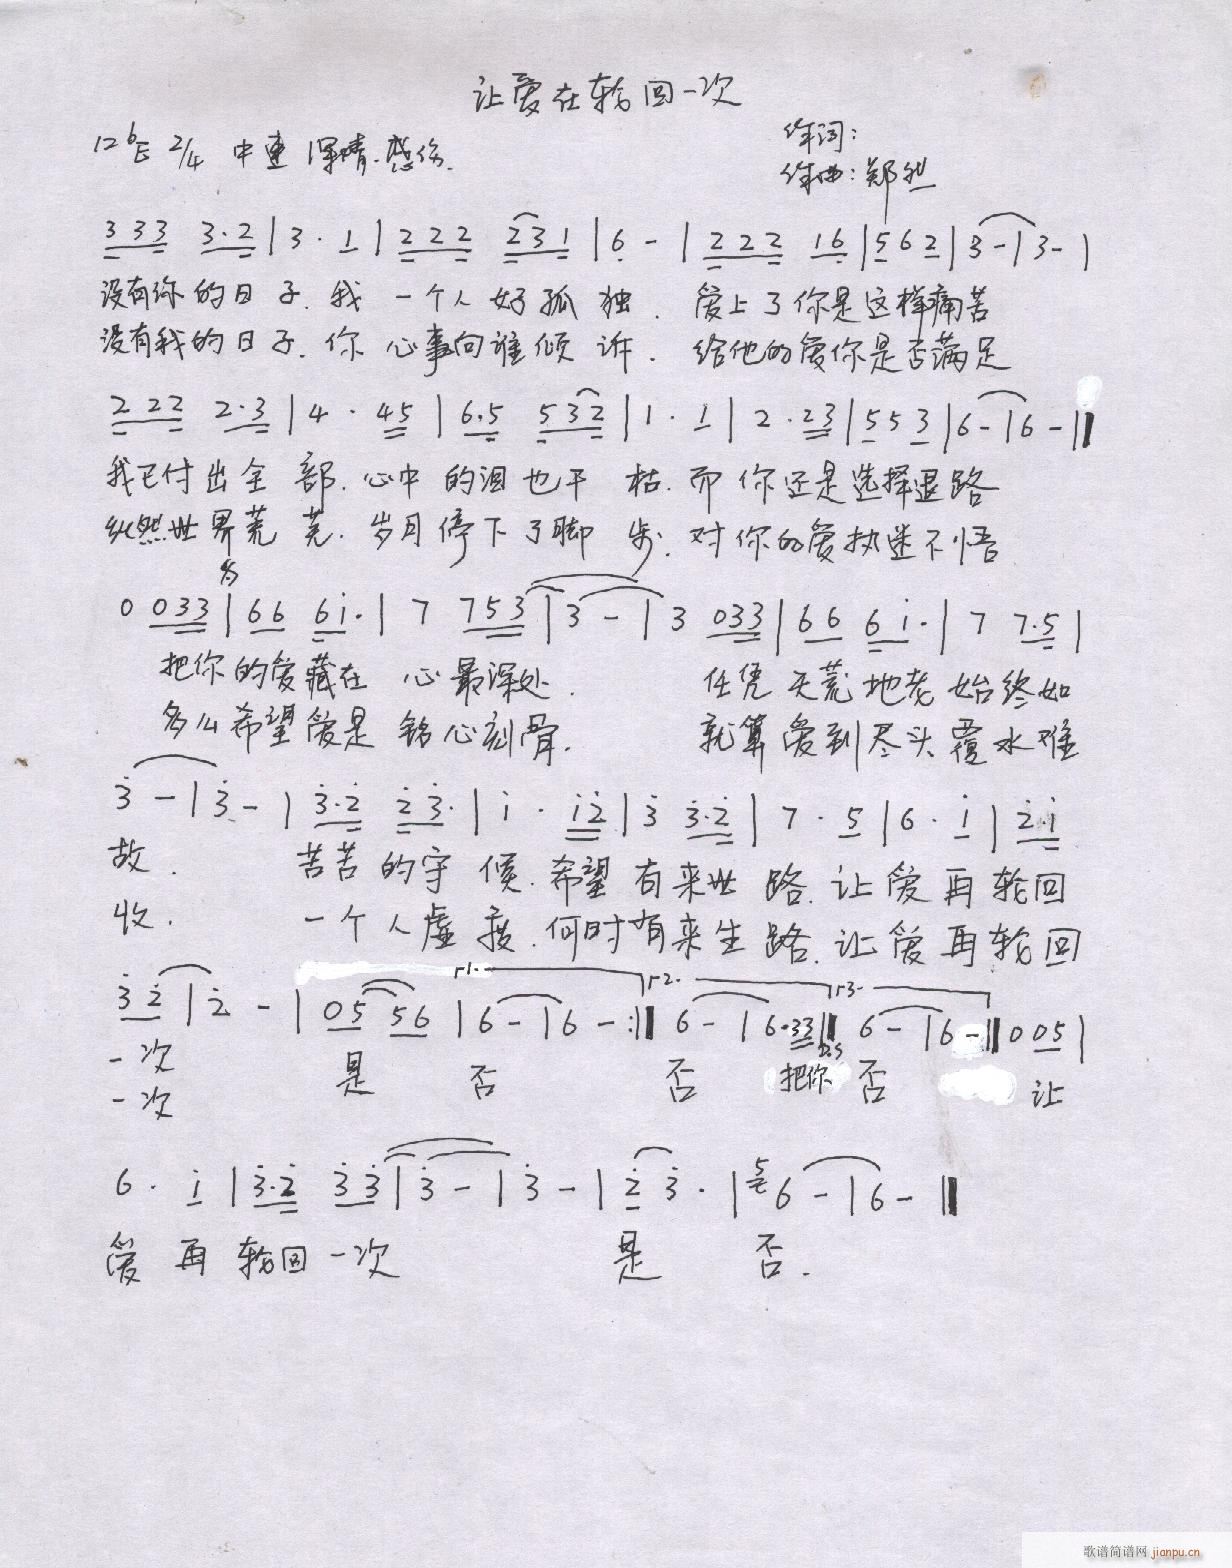 让爱在轮回一次
1=bE 2/4 中速 深情.感伤.
作词:
作曲:郑
3 3 3 3·2 | 3 · 1 | 2 2 2 2 3 1 | 6 - | 2 2 2 1 6 | 5 6 2 | 3 - | 3 - |
没有你的日子.我 一个人好孤独. 爱上了你是这样痛苦
没有我的日子.你 心事向谁倾诉. 给他的爱你是否满足
2 2 2 2·3 | 4 · 4 5 | 6·5 5 3 2 | 1 · 1 | 2 · 2 3 | 5 5 3 | 6 - | 6 - ‖
我已付出全部.心中的泪也干枯.而你还是选择退路
纵然世界荒芜.岁月停下了脚步.对你的爱执迷不悟
0 0 3 3 | 6 6 6 i · | 7 7 5 3 | 3 - | 3 0 3 3 | 6 6 6 i · | 7 7·5 |
把你的爱藏在 心最深处. 任凭天荒地老始终如
多么希望爱是 铭心刻骨. 就算爱到尽头覆水难
3 - | 3 - | 3·2 2 3 · | i · i 2 | 3 3·2 | 7 · 5 | 6 · i | 2·i
故. 苦苦的守候.希望有来世路.让爱再轮回
收. 一个人虚度.何时有来生路.让爱再轮回
1. 2. 3.
3 2 | 2 - | 0 5 5 6 | 6 - | 6 - :‖ 6 - | 6·3 3 ‖ 6 - | 6 - ‖ 0 0 5 |
D.S
一次 是 否 否 把你 否 让
一次
6 · i | 3·2 3 3 | 3 - | 3 - | 2 3 · | 5 6 - | 6 - ‖
爱再轮回一次 是 否.
歌谱简谱网 jianpu.cn